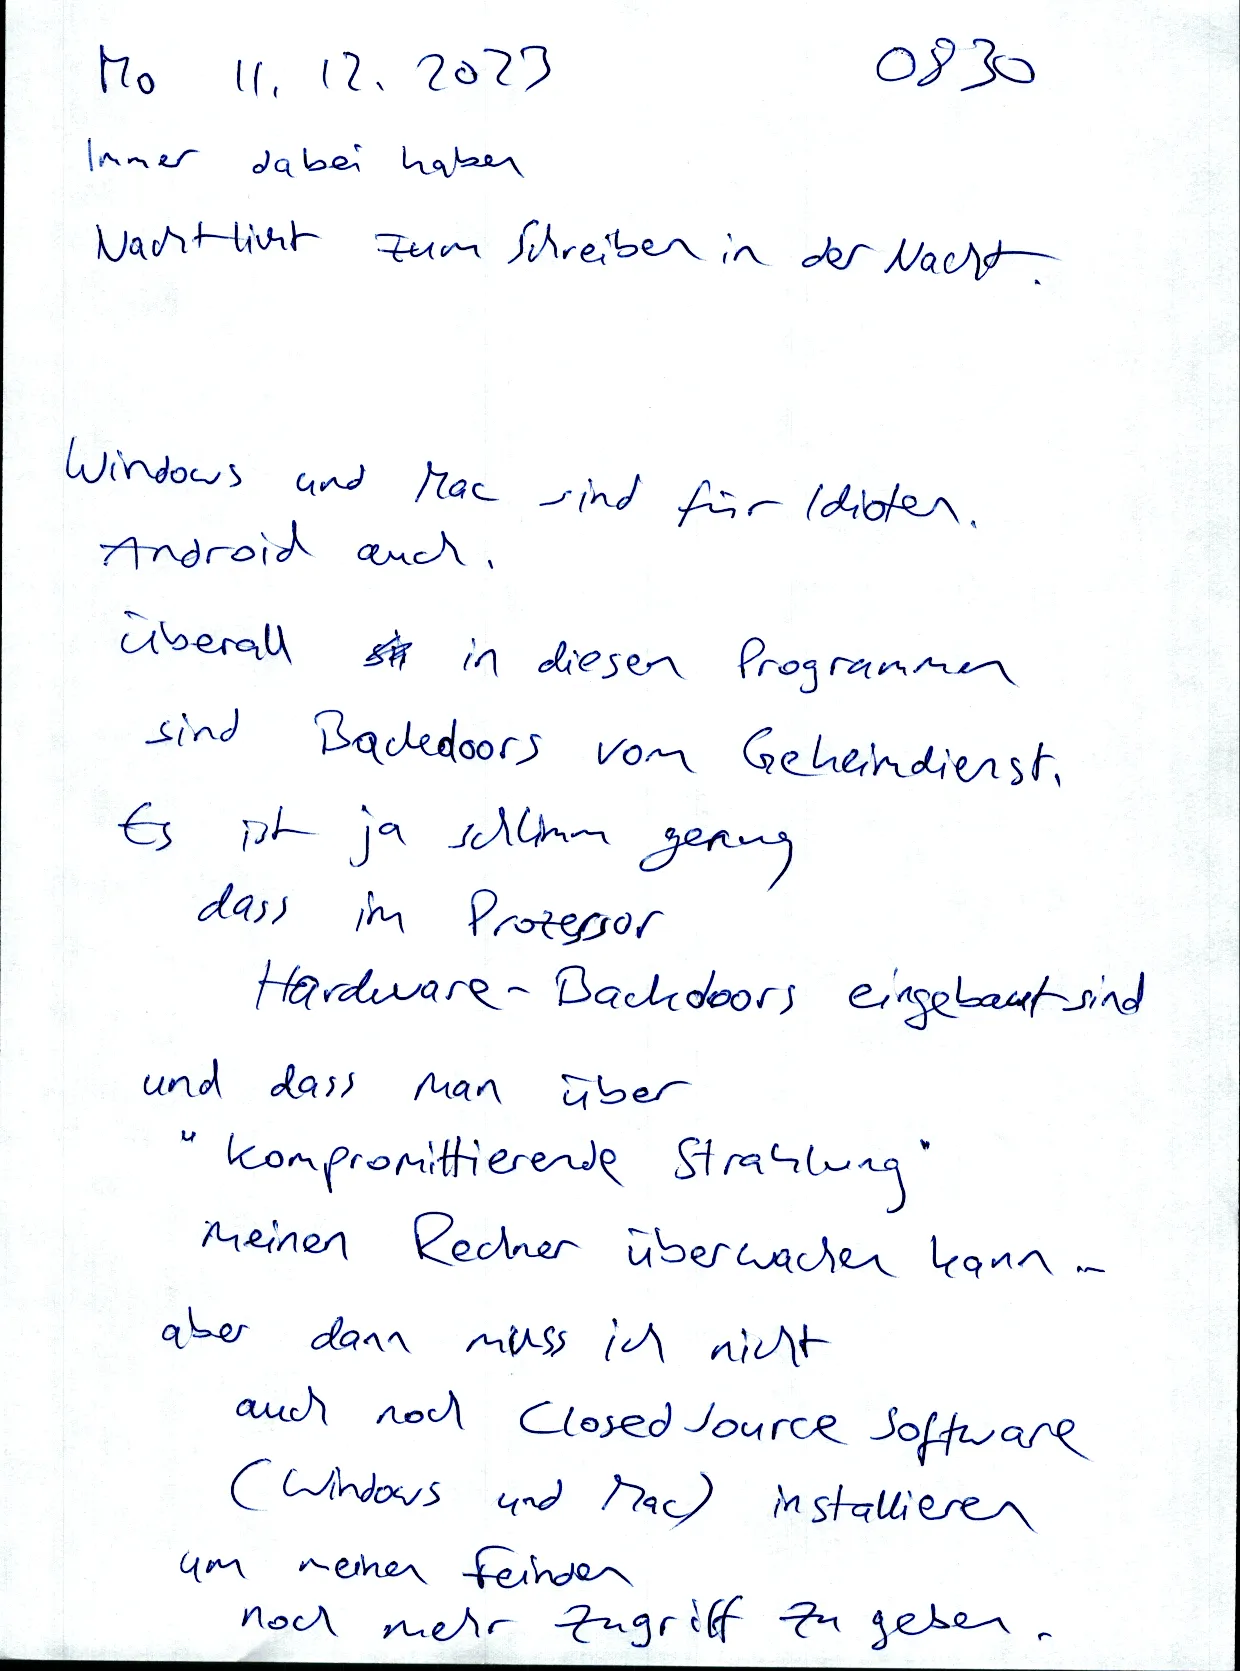 Mo 11.12.2023 0830
Immer dabei haben
Nachtlicht zum Schreiben in der Nacht.
Windows und Mac sind für Idioten.
Android auch.
überall in diesen Programmen
sind Backdoors vom Geheimdienst.
Es ist ja schlimm genug
dass im Prozessor
Hardware-Backdoors eingebaut sind
und dass man über
"kompromittierende Strahlung"
meinen Rechner überwachen kann -
aber dann muss ich nicht
auch noch Closed Source Software
(Windows und Mac) installieren
um meinen Feinden
noch mehr Zugriff zu geben.